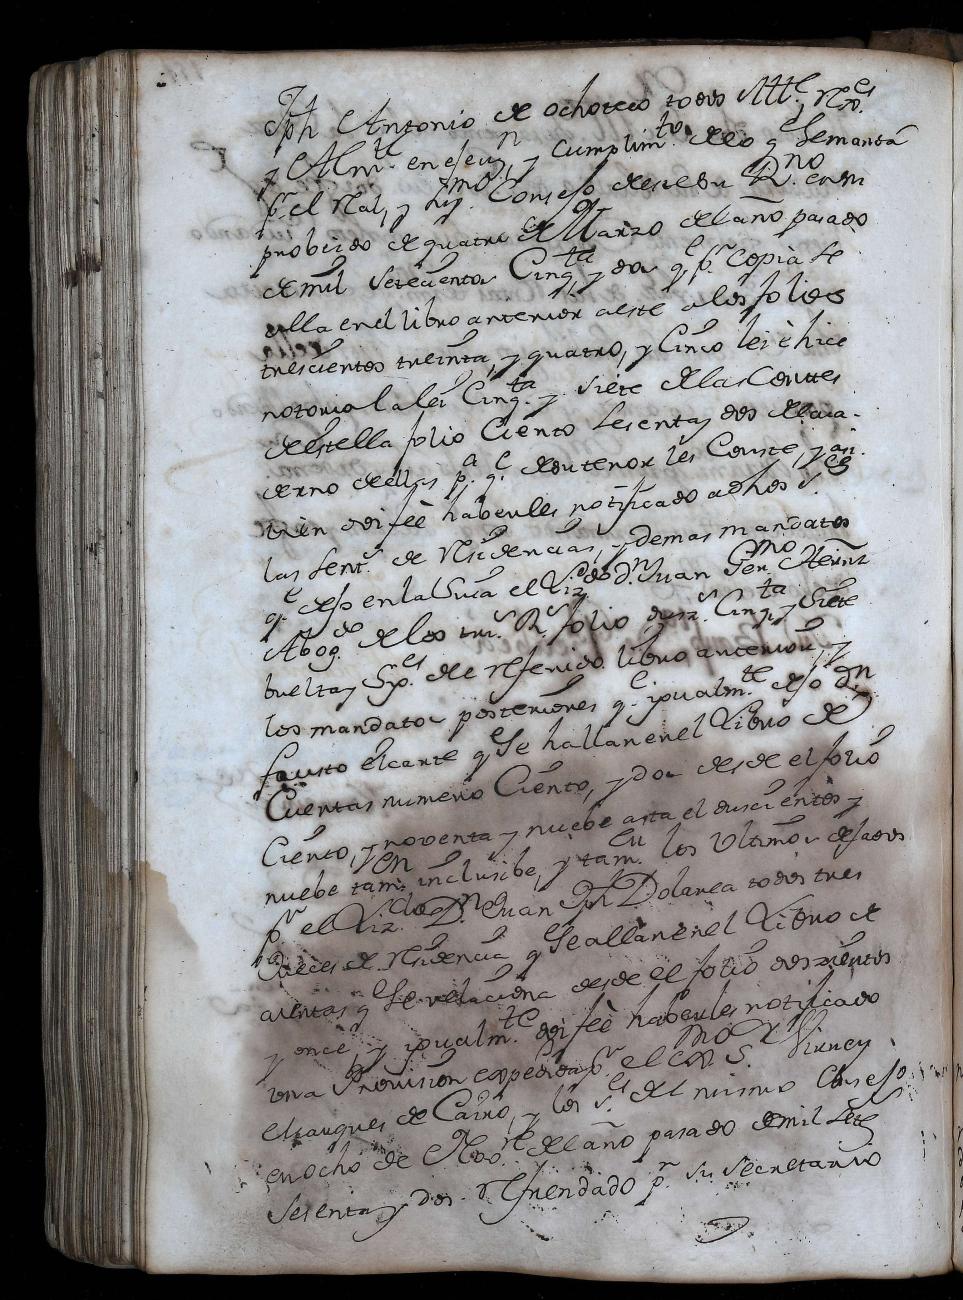 Jph Antonio de ochoteco todos Alltes, Rexres
y Almte. en ejecuzn, y cumplimto. de lo qe Se manda
pr. el Real, y Supmo. Consejo de este su Rno. en su
probeido de quatro de Marzo del año pasado
de mil Setecientos Cinqta y dos qe pr. copia se
alla en el libro anterior a este a los folios
trescientos treinta, y quatro, y Cinco lei è hice
notoria la lei Cinqta. y siete de las Cortes
de estella folio Ciento Sesenta y dos del qua-
derno de ellas pa. qe. de su tenor les Conste, y asi
bien doi feè haberles notificado a dhos Sres.
las Sents. de Residencias, y demas mandatos
qe dejo en la Suia el Lizdo. dn. Juan Germo Herniz
Abogdo. de los trs. Rs. folio duzs. Cinqta. y Siete
buelta y Sigtes. de el referido libro anterior, y
los mandatos posteriores qe. igualmte. dejo dn
fausto elcarte qe Se hallan en el Libro de
Cuentas numero Ciento, y dos desde el folio
Ciento, y noventa y nuebe asta el duscientos y
nuebe tamn. inclusibe, y tamn. los Ultimos dejados
pr el Lizdo Dn. Juan Jph Dolarea todos tres
Jueces de Residencia qe Se allan en el Libro de
quentas qe Se relaciona desde el folio dosзientos
y once, y igualmte. doi feè haberles notificado
una Provision expedida pr. el exmo S. Virrey
Marques de Cairo, y los Sres del mismo Consejo
en ocho de Nobre. del año pasado de mil Setes
Sesenta y dos. refrendado pr. su Secretario